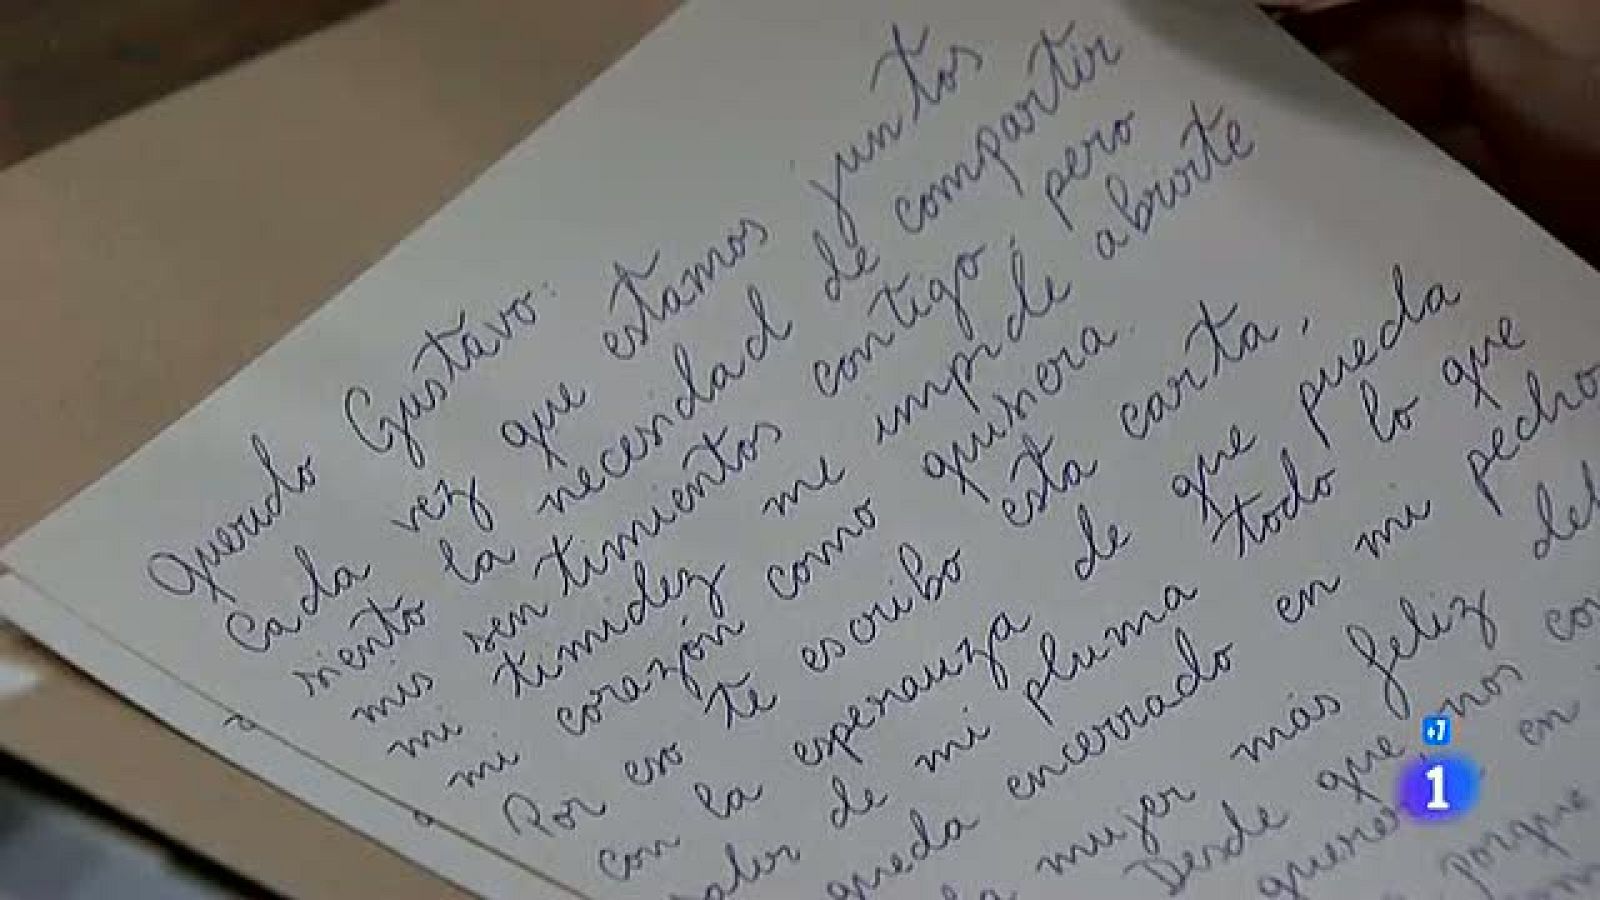 Querido Gustavo:
Cada vez que estamos juntos
siento la necesidad de compartir
mis sentimientos contigo, pero
mi timidez me impide abrirte
mi corazón como quisiera.
Por eso te escribo esta carta,
con la esperanza de que pueda
salir de mi pluma todo lo que
queda encerrado en mi pecho
la mujer más feliz del
Desde que nos
querer en
porque
+7
1